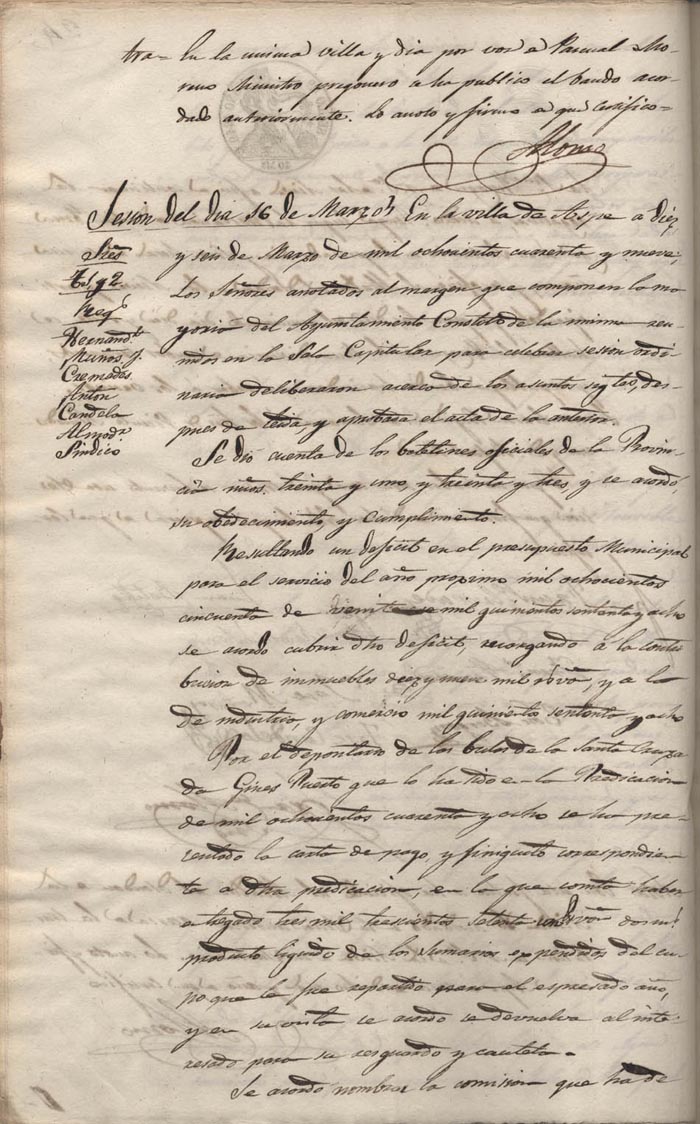 tra= En la misma villa y dia por voz de Pascual Mo-
reno Ministro pregonero se ha publicó el bando acor-
dado anteriormente. Lo anoto y firmo de que certifico=
Alonso
Sesion del dia 16 de Marzo En la villa de Aspe a diez,
y seis de Marzo de mil ochocientos cuarenta y nueve,
Los Señores anotados al margen que componen la ma-
yoria del Ayuntamiento Constitl de la misma reu-
nidos en la Sala Capitular para celebrar sesion ordi-
naria deliberaron acerca de los asuntos sigtes, des-
pues de leida, y aprobada el acta de la anterior.
Sres
Ts 1 y 2
Reg
Hernand.
Muños, y.
Cremades
Anton
Candela
Almodr.
Sindico
Se dió cuenta de los boletines oficiales de la Provin-
cia nums. treinta y uno, y treinta y tres, y se acordó,
su obedecimiento, y cumplimiento.
Resultando un deficit en el presupuesto Municipal
para el servicio del año proximo mil ochocientos
cincuenta de veinte mil quinientos setenta y ocho
se acordo cubrir dho deficit, recargando a la contri
bucion de inmuebles diez y nueve mil rs von, y a la
de industria, y comercio mil quinientos setenta y ocho
Por el depositario de las bulas de la Santa Cruza-
da Gines Puerto que lo ha sido en la Predicacion
de mil ochocientos cuarenta y ocho se ha pre-
sentado la carta de pago, y finiquito correspondien-
te a dha predicacion, en la que consta haber
entregado tres mil trescientos setenta von dos ms
producto liquido de los Sumarios expendidos del cu-
po que le fue repartido para el espresado año,
y en su vista se acordo se devuelva al inte-
resado para su resguardo y cautela.
Se acordo nombrar la comision que ha de